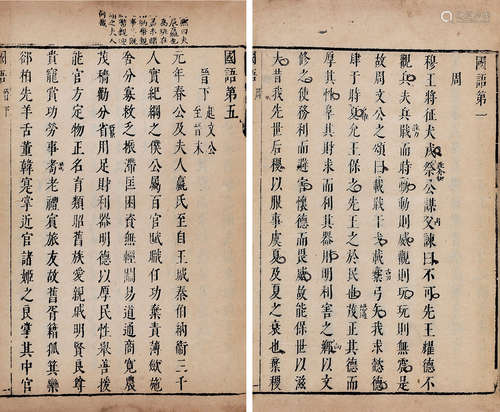 國語第一
周
穆王將征犬戎祭公謀父諫曰不可先王耀德不
觀兵夫兵戢而時動動則威觀則玩玩則無震是
故周文公之頌曰載戢干戈載櫜弓矢我求懿德
肆于時夏允王保之先王之於民也茂正其德而
厚其性阜其財求而利其器用明利害之鄉以文
修之使務利而避害懷德而畏威故能保世以滋
大昔我先世后稷以服事虞夏及夏之衰也棄稷
國語第五
晉下 起文公
至晉末
元年春公及夫人嬴氏至自王城秦伯納衛三千
人實紀綱之僕公屬百官賦職任功棄責薄斂施
舍分寡救乏振滯匡困資無輕關易道通商寬農
茂穡勸分省用足財利器明德以厚民性舉善援
能官方定物正名育類昭舊族愛親戚明賢良尊
貴寵賞功勞事耇老禮賓旅友故舊胥籍狐箕欒
郤柏先羊舌董韓寔掌近官諸姬之良掌其中官
國語 晉下